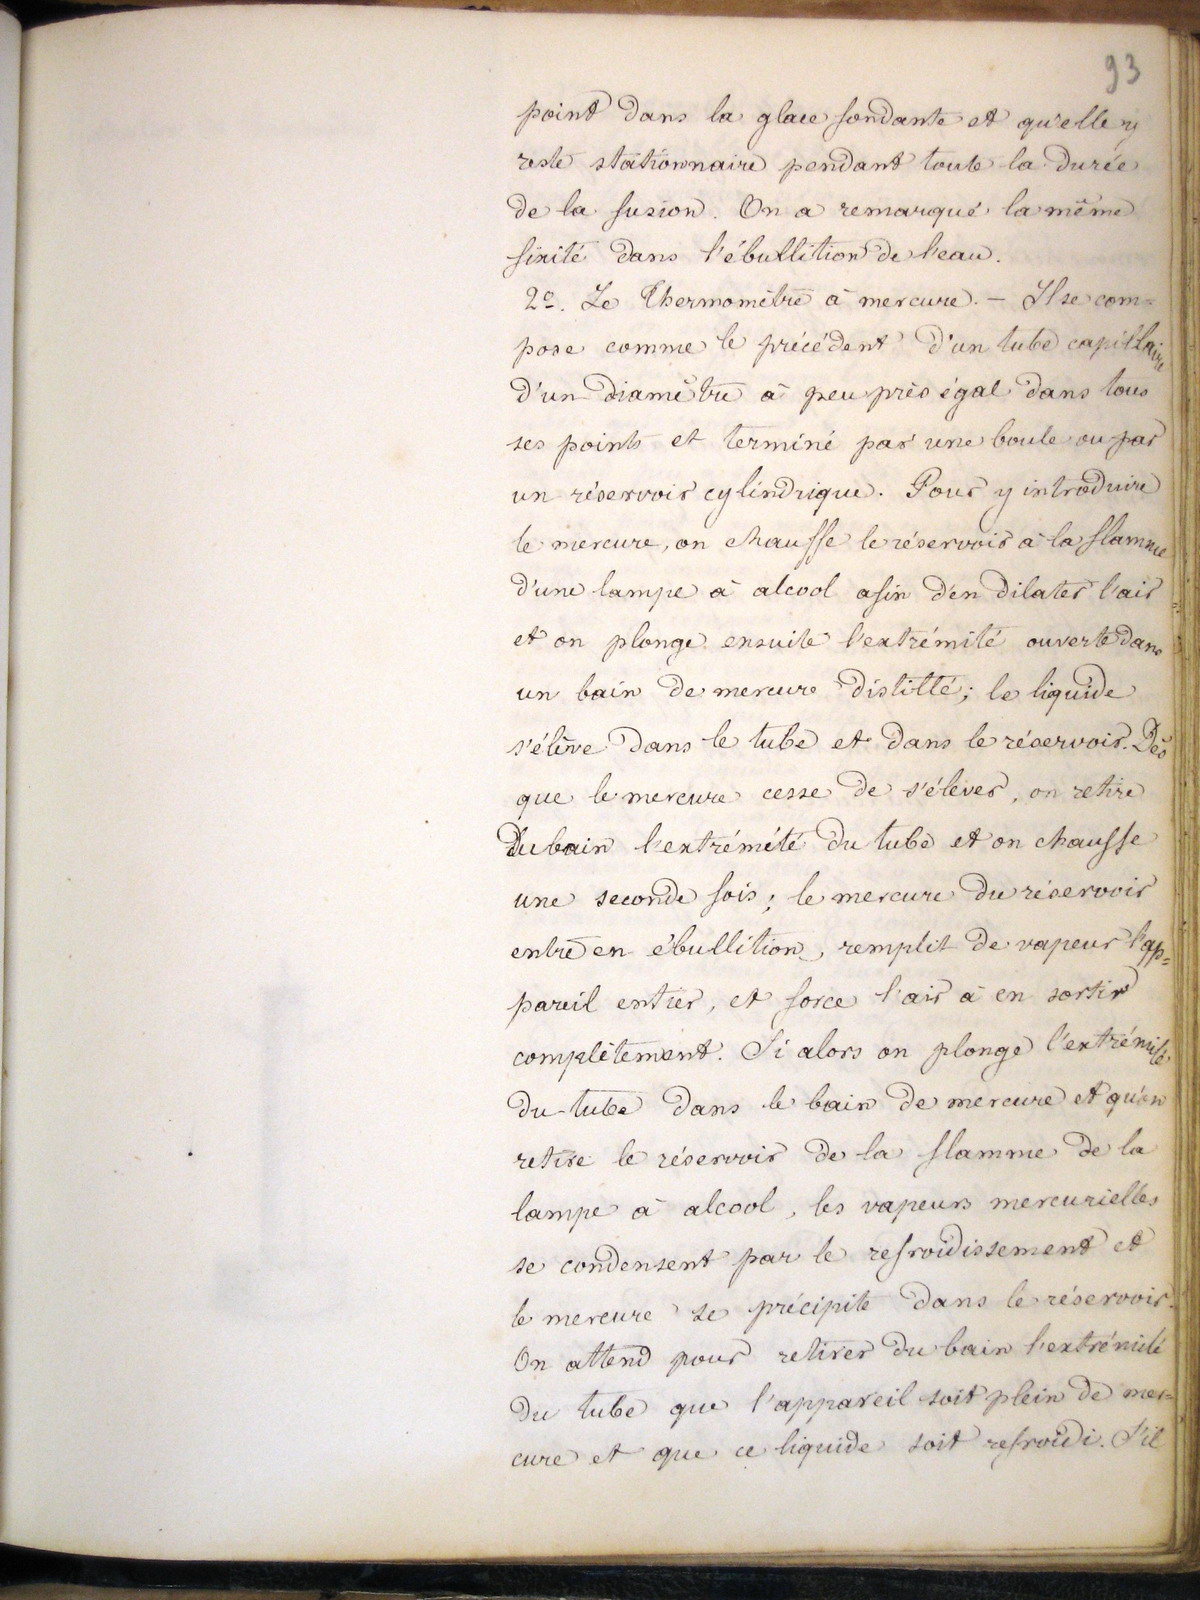 93
point dans la glace fondante et qu'elle y
reste stationnaire pendant toute la durée
de la fusion. On a remarqué la même
fixité dans l'ébullition de l'eau.
2º. Le Thermomètre à mercure. — Il se com=
pose comme le précédent d'un tube capillaire
d'un diamètre à peu près égal dans tous
ses points et terminé par une boule ou par
un réservoir cylindrique. Pour y introduire
le mercure, on chauffe le réservoir à la flamme
d'une lampe à alcool afin d'en dilater l'air
et on plonge ensuite l'extrémité ouverte dans
un bain de mercure distillé; le liquide
s'élève dans le tube et dans le réservoir. Dès
que le mercure cesse de s'élever, on retire
du bain l'extrémété du tube et on chauffe
une seconde fois; le mercure du réservoir
entre en ébullition, remplit de vapeur l'ap=
pareil entier, et force l'air à en sortir
complètement. Si alors on plonge l'extrémité
du tube dans le bain de mercure et qu'on
retire le réservoir de la flamme de la
lampe à alcool, les vapeurs mercurielles
se condensent par le refroidissement et
le mercure se précipite dans le réservoir.
On attend pour retirer du bain l'extrémité
du tube que l'appareil soit plein de mer=
cure et que ce liquide soit refroidi. S'il